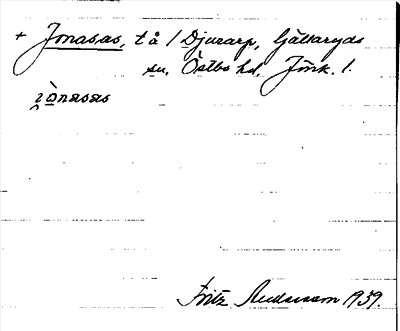 + Jonasas, t å / Djurarp, Gällaryds
sn, Östbo hd, Jönk. l.
i̯ònasas
Fritz Andersson 1939.